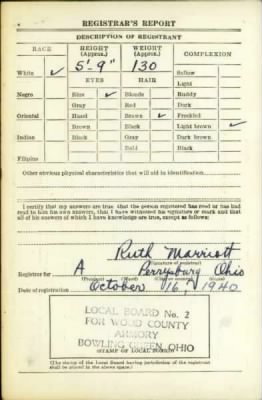 REGISTRAR'S REPORT
DESCRIPTION OF REGISTRANT
RACE HEIGHT (Approx.) WEIGHT (Approx.) COMPLEXION
White ✓ 5'-9" 130 Sallow
Light
EYES HAIR
Negro Blue ✓ Blonde Ruddy
Gray Red Dark
Oriental Hazel Brown ✓ Freckled
Brown Black Light brown ✓
Indian Black Gray Dark brown
Bald Black
Filipino
Other obvious physical characteristics that will aid in identification
I certify that my answers are true; that the person registered has read or has had
read to him his own answers; that I have witnessed his signature or mark and that
all of his answers of which I have knowledge are true, except as follows:
Ruth Marriott
(Signature of registrar)
Registrar for A Perrysburg Ohio
(Precinct) (Ward) (City or county) (State)
Date of registration October 16, 1940
LOCAL BOARD No. 2
FOR WOOD COUNTY
ARMORY
BOWLING GREEN, OHIO
(STAMP OF LOCAL BOARD)
(The stamp of the Local Board having jurisdiction of the registrant
shall be placed in the above space.)